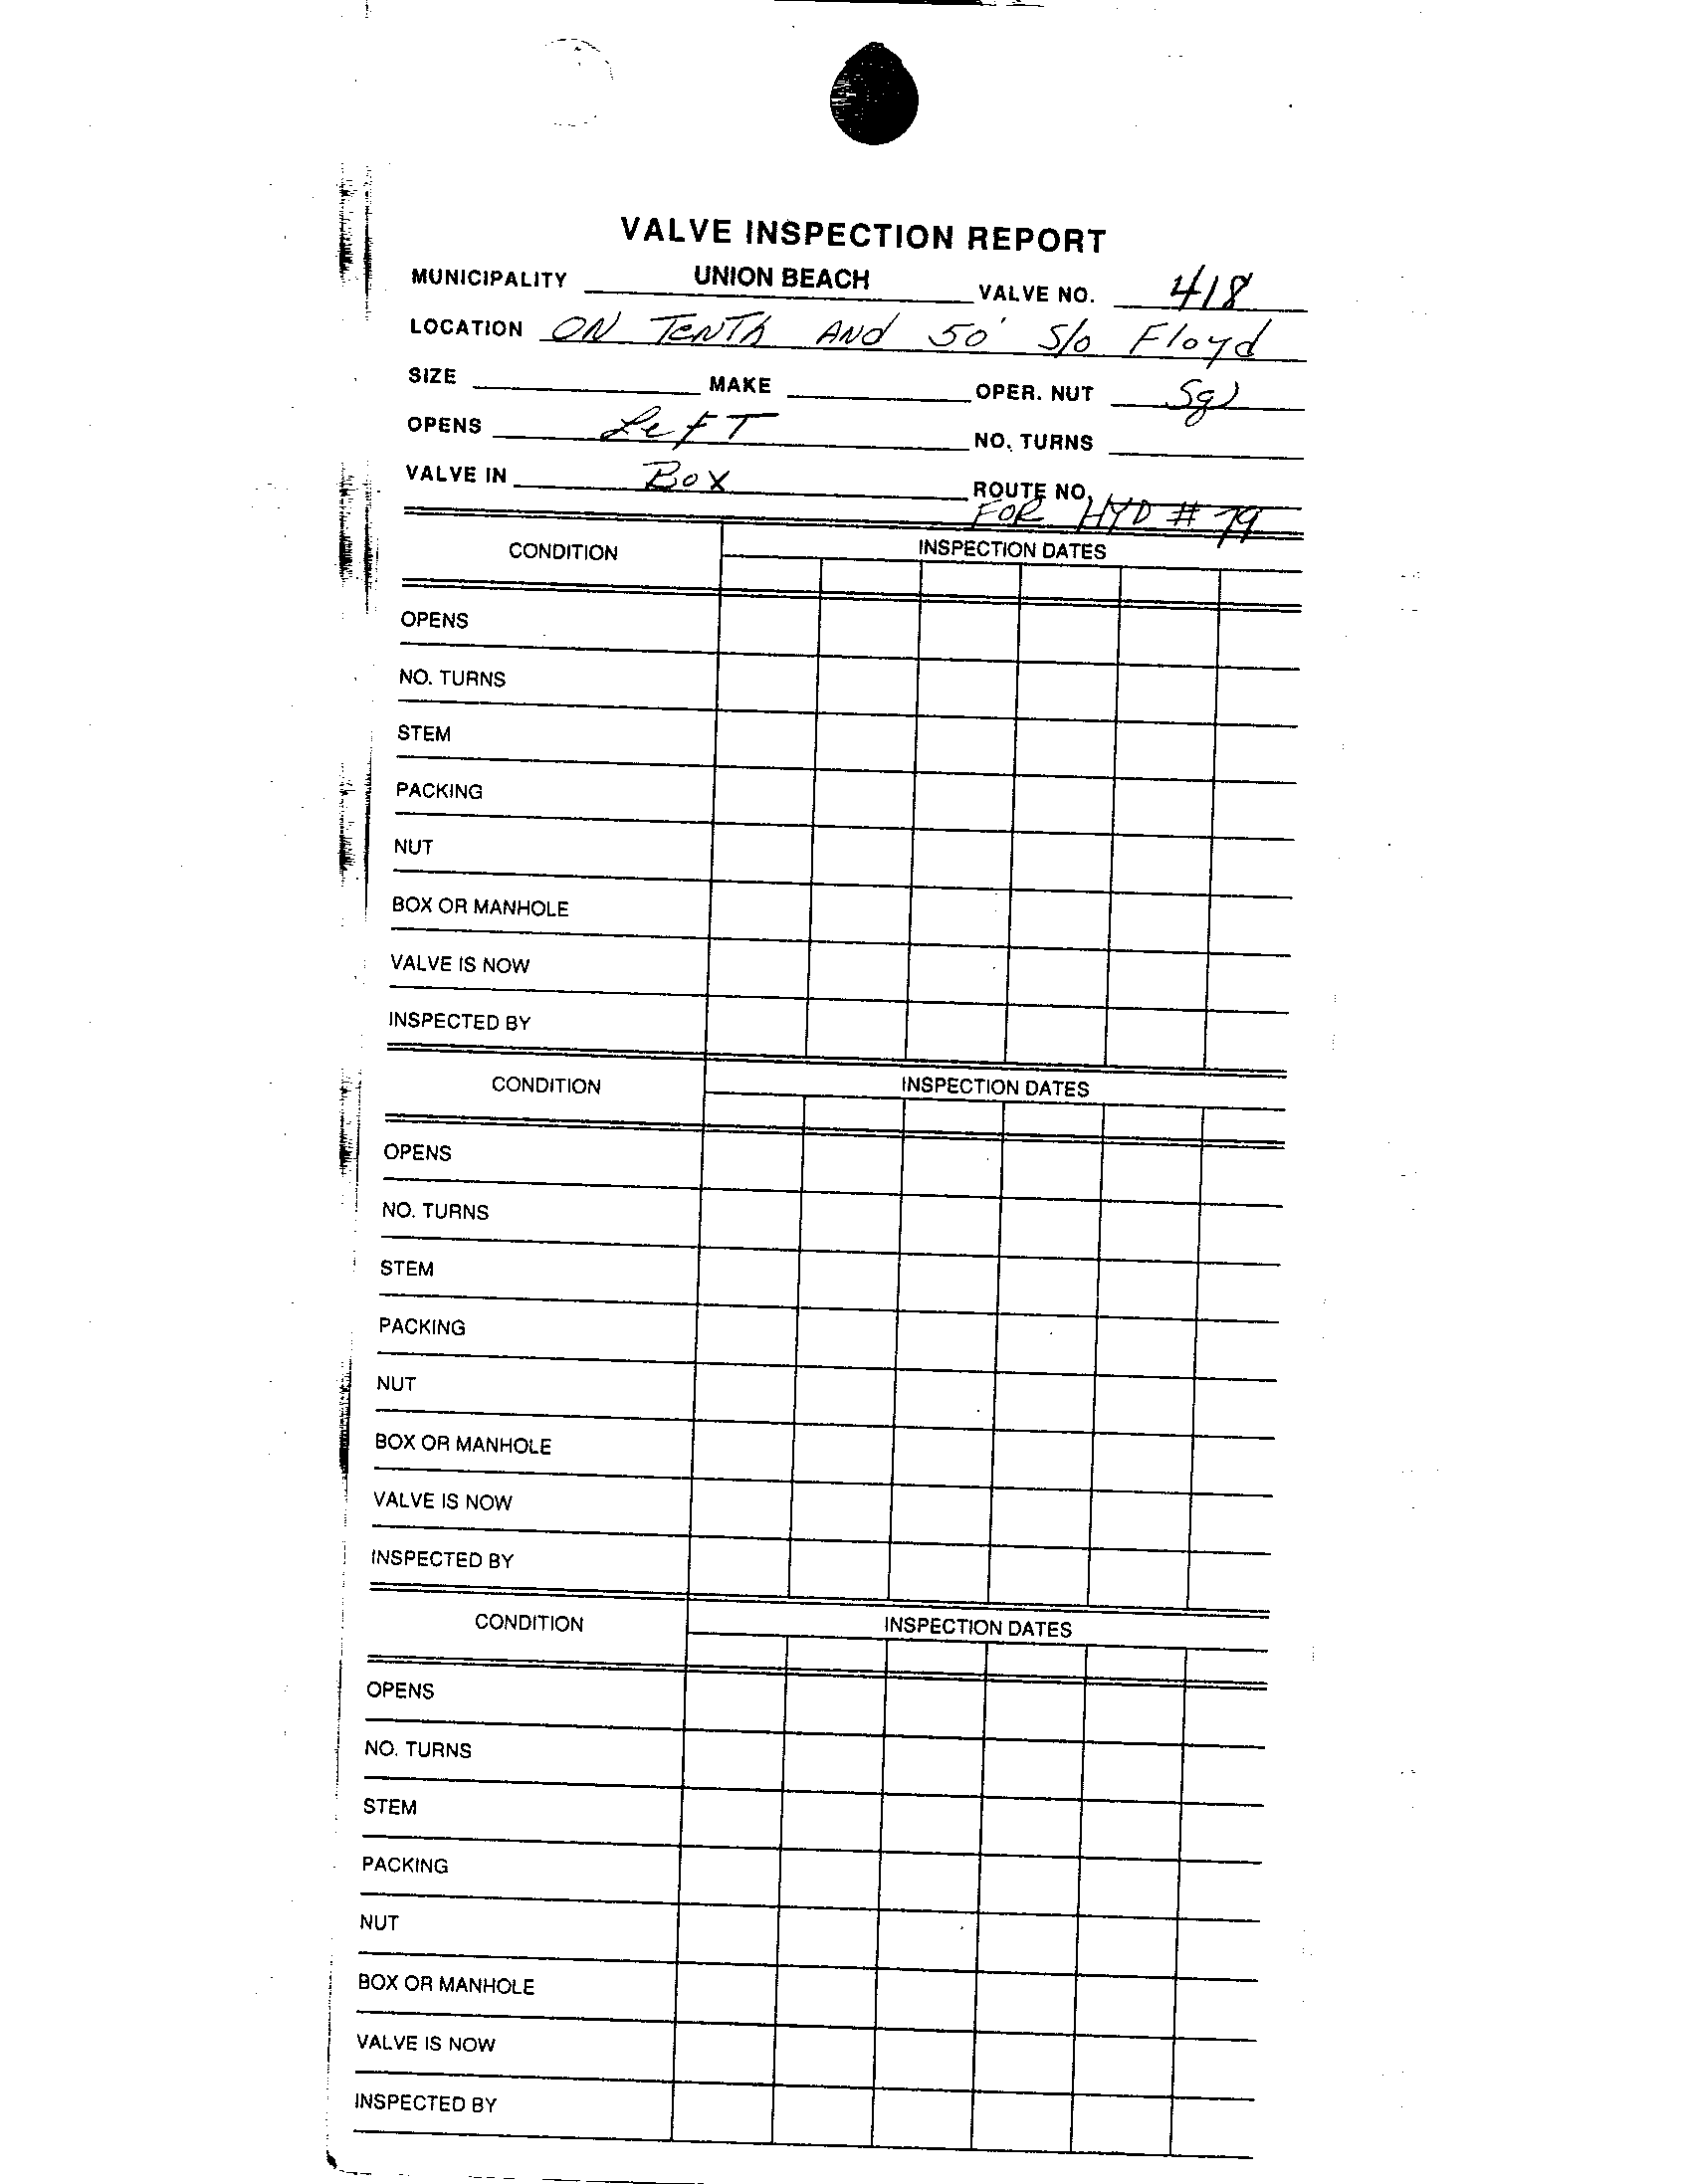 VALVE INSPECTION REPORT
MUNICIPALITY UNION BEACH VALVE NO. 418
LOCATION ON TENTH AND 50' S/o Floyd
SIZE MAKE OPER. NUT Sq
OPENS LEFT NO. TURNS
VALVE IN Box ROUTE NO.
FOR HYD # 79
CONDITION INSPECTION DATES
OPENS
NO. TURNS
STEM
PACKING
NUT
BOX OR MANHOLE
VALVE IS NOW
INSPECTED BY
CONDITION INSPECTION DATES
OPENS
NO. TURNS
STEM
PACKING
NUT
BOX OR MANHOLE
VALVE IS NOW
INSPECTED BY
CONDITION INSPECTION DATES
OPENS
NO. TURNS
STEM
PACKING
NUT
BOX OR MANHOLE
VALVE IS NOW
INSPECTED BY